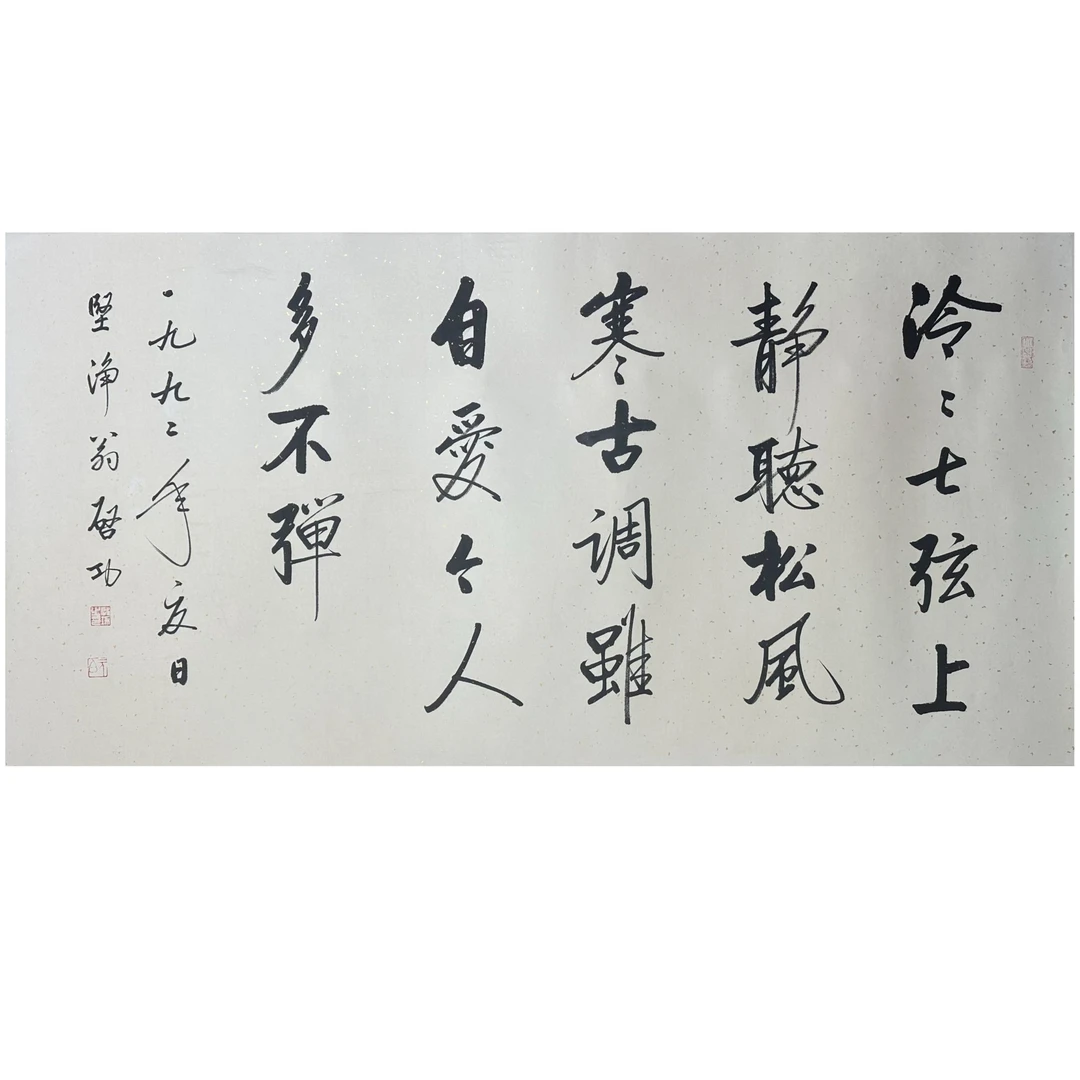 泠〻七弦上
静聽松風
寒〻古调雖
自愛今人
多不彈
一九九二年夏日
堅淨翁啓功